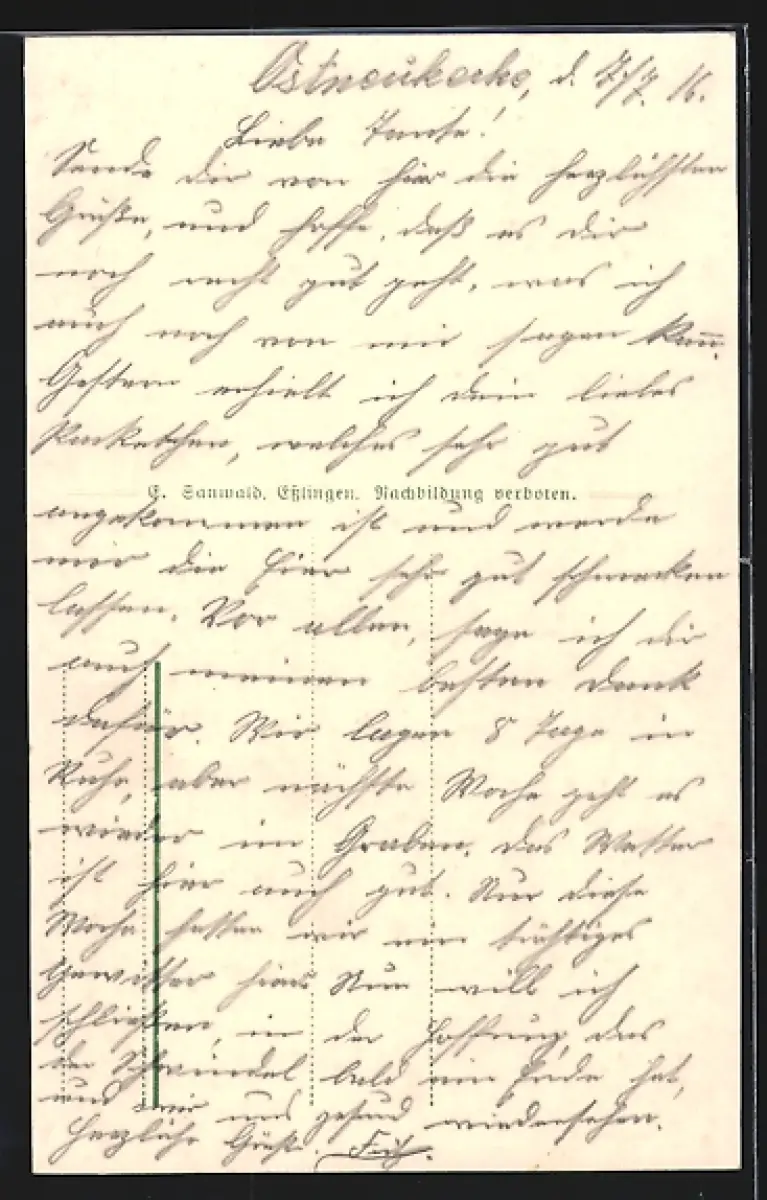 Ostneukerke, d. 7/7. 16.
Liebe Tante!
Sende dir von hier die herzlichsten
Grüße, und hoffe, daß es dir
noch recht gut geht, was ich
auch noch von mir sagen kann.
Gestern erhielt ich dein liebes
Packetchen, welches sehr gut
E. Sanwald, Eßlingen. Nachbildung verboten.
angekommen ist und werde
mir die hier sehr gut schmecken
lassen. Vor allen, sage ich dir
auch meinen besten Dank
dafür. Wir lagen 8 Tage in
Ruhe, aber nächste Woche geht es
wieder im Graben. Das Wetter
ist hier auch gut. Nur diese
Woche hatten wir ein tüchtiges
Gewitter hier. Nun will ich
schließen, in der Hoffnung, das
der Schwindel bald ein Ende hat,
und wir uns gesund wiedersehen.
Herzliche Grüße. Fritz.